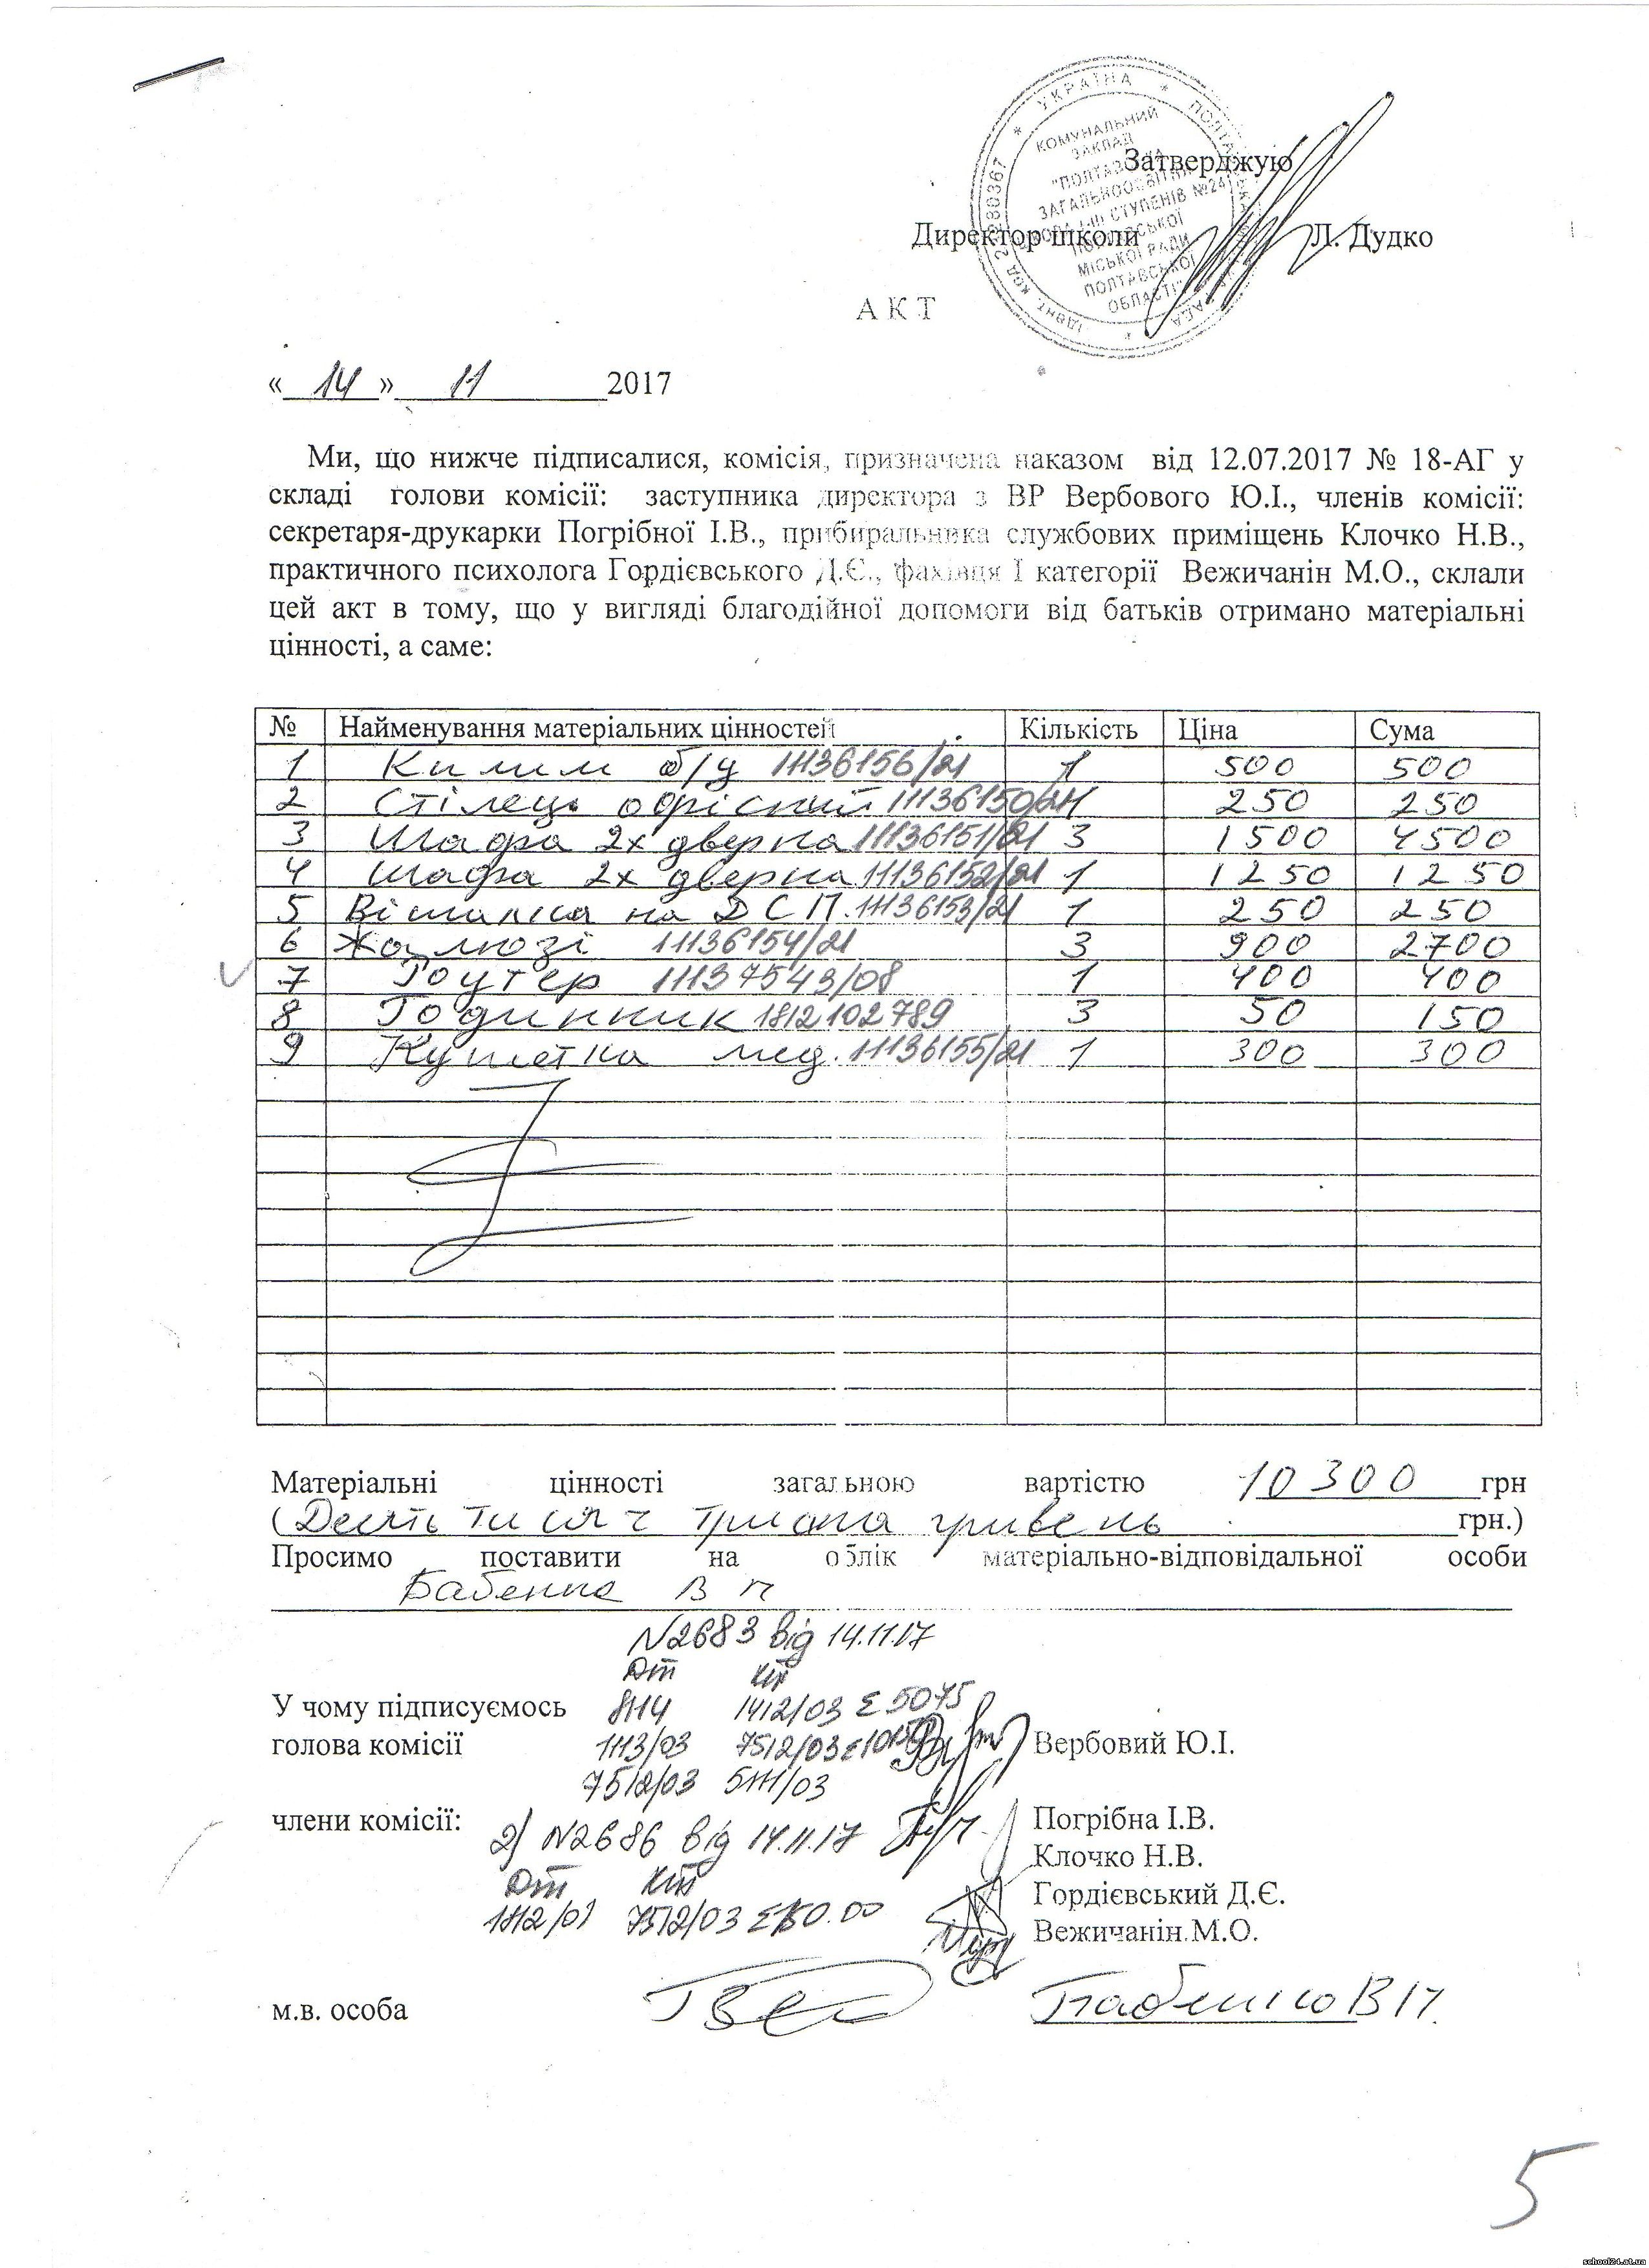 * УКРАЇНА *
КОМУНАЛЬНИЙ
ЗАКЛАД
"ПОЛТАВСЬКА
ЗАГАЛЬНООСВІТНЯ
ШКОЛА І-ІІІ СТУПЕНІВ №24
ПОЛТАВСЬКОЇ
МІСЬКОЇ РАДИ
ПОЛТАВСЬКОЇ
ОБЛАСТІ"
Затверджую
Директор школи Л. Дудко
А К Т
« 14 » 11 2017
Ми, що нижче підписалися, комісія, призначена наказом від 12.07.2017 № 18-АГ у
складі голови комісії: заступника директора з ВР Вербового Ю.І., членів комісії:
секретаря-друкарки Погрібної І.В., прибиральника службових приміщень Клочко Н.В.,
практичного психолога Гордієвського Д.Є., фахівця І категорії Вежичанін М.О., склали
цей акт в тому, що у вигляді благодійної допомоги від батьків отримано матеріальні
цінності, а саме:
№ Найменування матеріальних цінностей Кількість Ціна Сума
1 Килим б/у 11136156/21 1 500 500
2 Стілець офісний 11136150/21 1 250 250
3 Шафа 2х дверна 11136151/21 3 1500 4500
4 Шафа 2х дверна 11136152/21 1 1250 1250
5 Вішалка на ДСП. 11136153/21 1 250 250
6 Жалюзі 11136154/21 3 900 2700
7 Роутер 11137543/08 1 400 400
8 Годинник 1812102789 3 50 150
9 Кушетка мед. 11136155/21 1 300 300
Матеріальні цінності загальною вартістю 10300 грн
(Десять тисяч триста гривень грн.)
Просимо поставити на облік матеріально-відповідальної особи
Бабенко В П
N2683 від 14.11.17
Дт Кт
У чому підписуємось 8114 1412/03 Σ 5075
голова комісії 1113/03 7512/03 Σ 10150 Вербовий Ю.І.
7512/03 5111/03
члени комісії: Погрібна І.В.
2) N2686 від 14.11.17
Клочко Н.В.
Дт Кт
Гордієвський Д.Є.
1812/01 7512/03 Σ150.00
Вежичанін.М.О.
м.в. особа Бабенко В П.
5
school24.at.ua